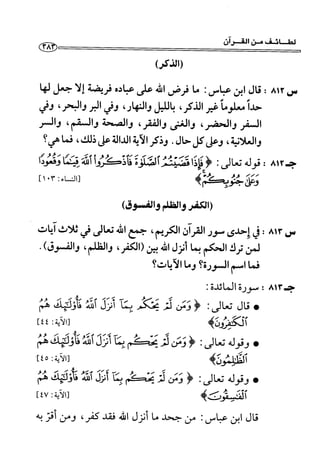 لطائف من القرآن
٢٨٣
(الذكر)
س ٨١٢ : قال ابن عباس: ما فرض الله على عباده فريضة إلا جعل لها
حداً معلوماً غير الذكر، بالليل والنهار، وفي البر والبحر، وفي
السفر والحضر، والغنى والفقر، والصحة والسقم، والسر
والعلانية، وعلى كل حال. وذكر الآية الدالة على ذلك، فما هي؟
جـ ٨١٢ : قوله تعالى: ﴿ فَإِذَا قَضَيْتُمُ الصَّلَوٰةَ فَاذْكُرُوا اللَّهَ قِيَامًا وَقُعُودًا
وَعَلَىٰ جُنُوبِكُمْ ﴾ [النساء: ١٠٣]
(الكفر والظلم والفسوق)
س ٨١٣ : في إحدى سور القرآن الكريم، جمع الله تعالى في ثلاث آيات
لمن ترك الحكم بما أنزل الله بين (الكفر، والظلم، والفسوق).
فما اسم السورة؟ وما الآيات؟
جـ ٨١٣ : سورة المائدة:
• قال تعالى: ﴿ وَمَن لَّمْ يَحْكُم بِمَا أَنزَلَ اللَّهُ فَأُولَٰئِكَ هُمُ
الْكَافِرُونَ ﴾ [الآية: ٤٤]
• وقوله تعالى: ﴿ وَمَن لَّمْ يَحْكُم بِمَا أَنزَلَ اللَّهُ فَأُولَٰئِكَ هُمُ
الظَّالِمُونَ ﴾ [الآية: ٤٥]
• وقوله تعالى: ﴿ وَمَن لَّمْ يَحْكُم بِمَا أَنزَلَ اللَّهُ فَأُولَٰئِكَ هُمُ
الْفَاسِقُونَ ﴾ [الآية: ٤٧]
قال ابن عباس: من جحد ما أنزل الله فقد كفر، ومن أقرّ به